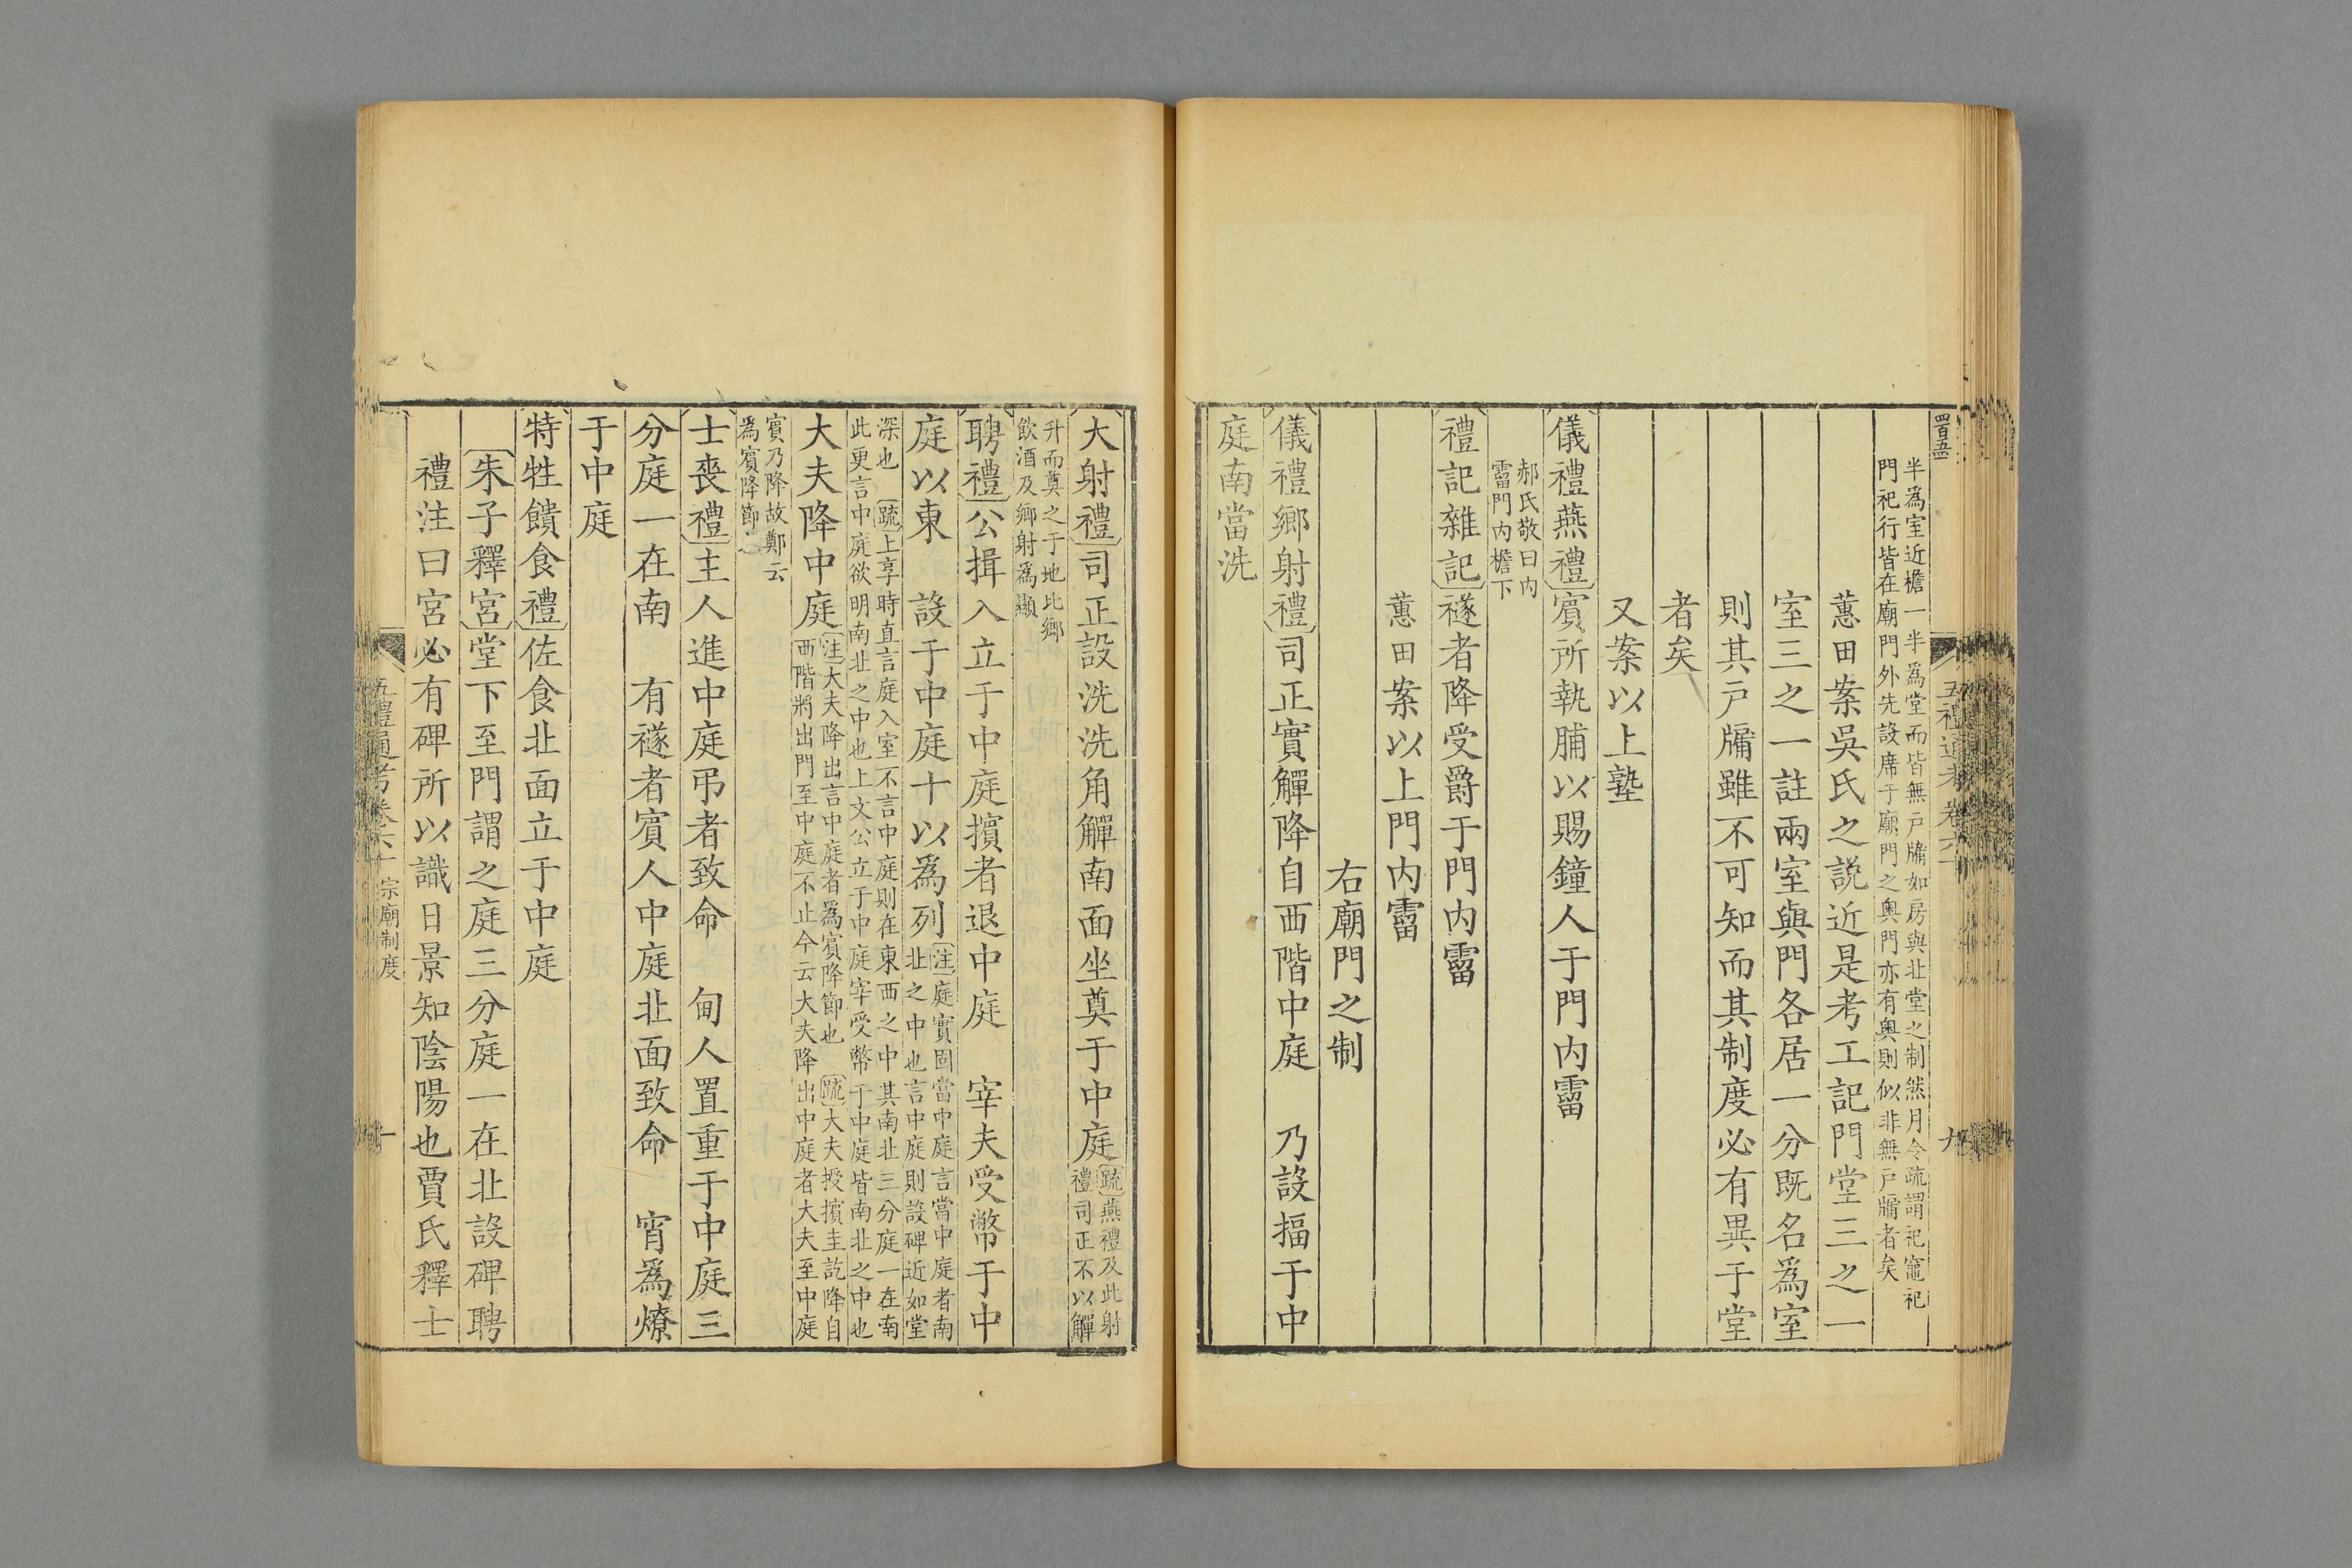 四百五
五禮通考卷六十
九
半爲室近檐一半爲堂而皆無戸牖如房與北堂之制然月令疏謂祀竈祀
門祀行皆在廟門外先設席于廟門之奧門亦有奧則似非無戸牖者矣
蕙田案吳氏之説近是考工記門堂三之一
室三之一註兩室與門各居一分既名爲室
則其戸牖雖不可知而其制度必有異于堂
者矣
又案以上塾
儀禮燕禮賓所執脯以賜鐘人于門内霤
郝氏敬曰内
霤門内檐下
禮記雜記襚者降受爵于門内霤
蕙田案以上門内霤
右廟門之制
儀禮鄉射禮司正實觶降自西階中庭　乃設楅于中
庭南當洗
大射禮司正設洗洗角觶南面坐奠于中庭疏燕禮及此射
禮司正不以觶
升而奠之于地比鄉
飲酒及鄉射爲顯
聘禮公揖入立于中庭擯者退中庭　宰夫受幣于中
庭以東　設于中庭十以爲列注庭實固當中庭言當中庭者南
北之中也言中庭則設碑近如堂
深也　疏上享時直言庭入室不言中庭則在東西之中其南北三分庭一在南
此更言中庭欲明南北之中也上文公立于中庭宰受幣于中庭皆南北之中也
大夫降中庭注大夫降出言中庭者爲賓降節也　疏大夫授擯圭訖降自
西階將出門至中庭不止今云大夫降出中庭者大夫至中庭
賓乃降故鄭云
爲賓降節也
士喪禮主人進中庭弔者致命　甸人置重于中庭三
分庭一在南　有襚者賓人中庭北面致命　宵爲燎
于中庭
特牲饋食禮佐食北面立于中庭
朱子釋宮堂下至門謂之庭三分庭一在北設碑聘
禮注曰宮必有碑所以識日景知陰陽也賈氏釋士
五禮通考卷六十　宗廟制度
十